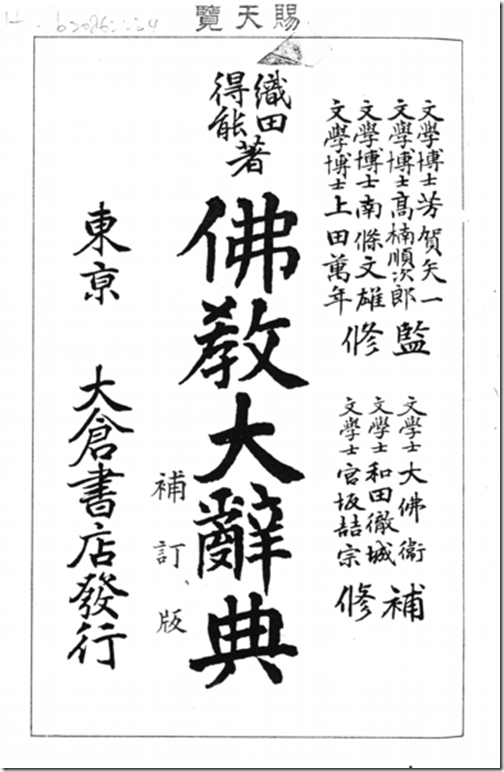 賜天覽
文學博士 芳賀矢一
文學博士 髙楠順次郎
文學博士 南條文雄
文學博士 上田萬年
監修
文學士 大佛衛
文學士 和田徹城
文學士 宮坂喆宗
補修
織田
得能著
佛教大辭典
補訂版
東京 大倉書店發行